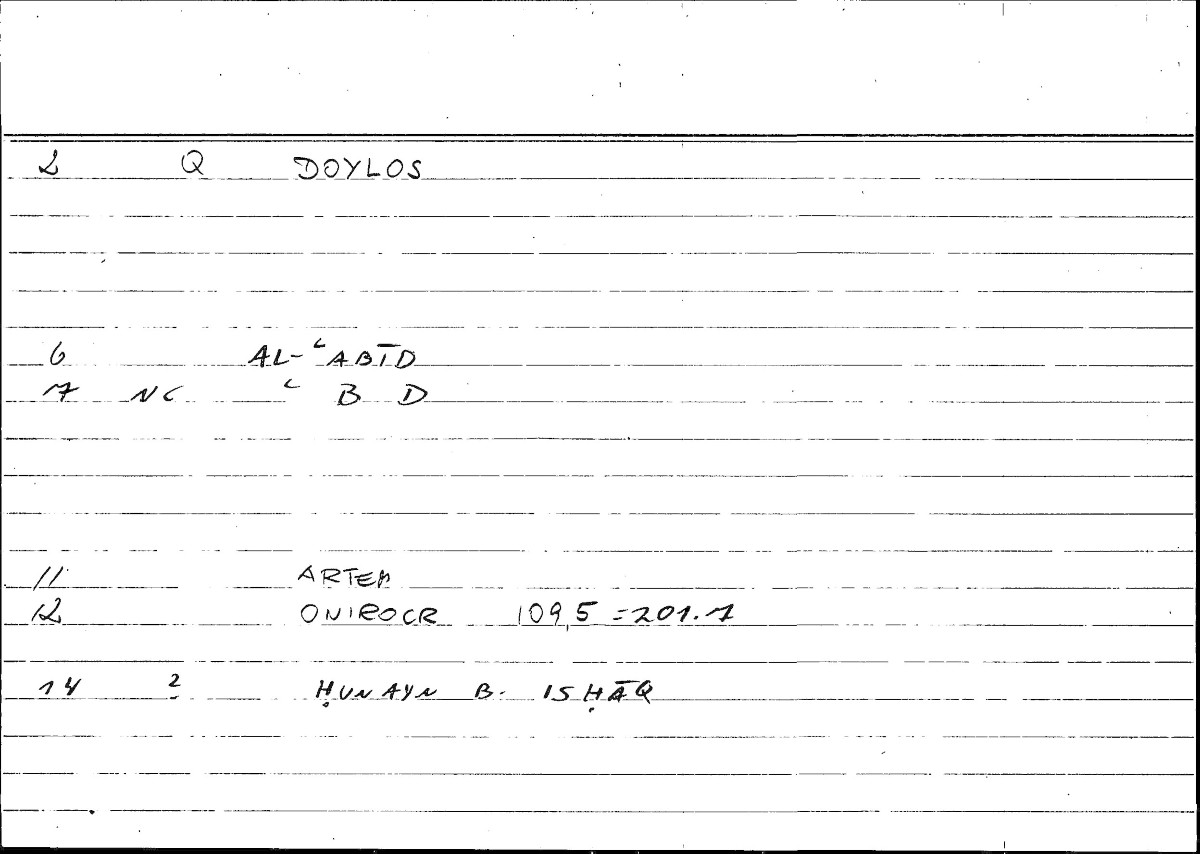 2 Q DOYLOS
6 AL-ʿABĪD
7 NC ʿ B D
11 ARTEM
12 ONIROCR 109,5 = 201.1
14 2 ḤUNAYN B. ISḤĀQ